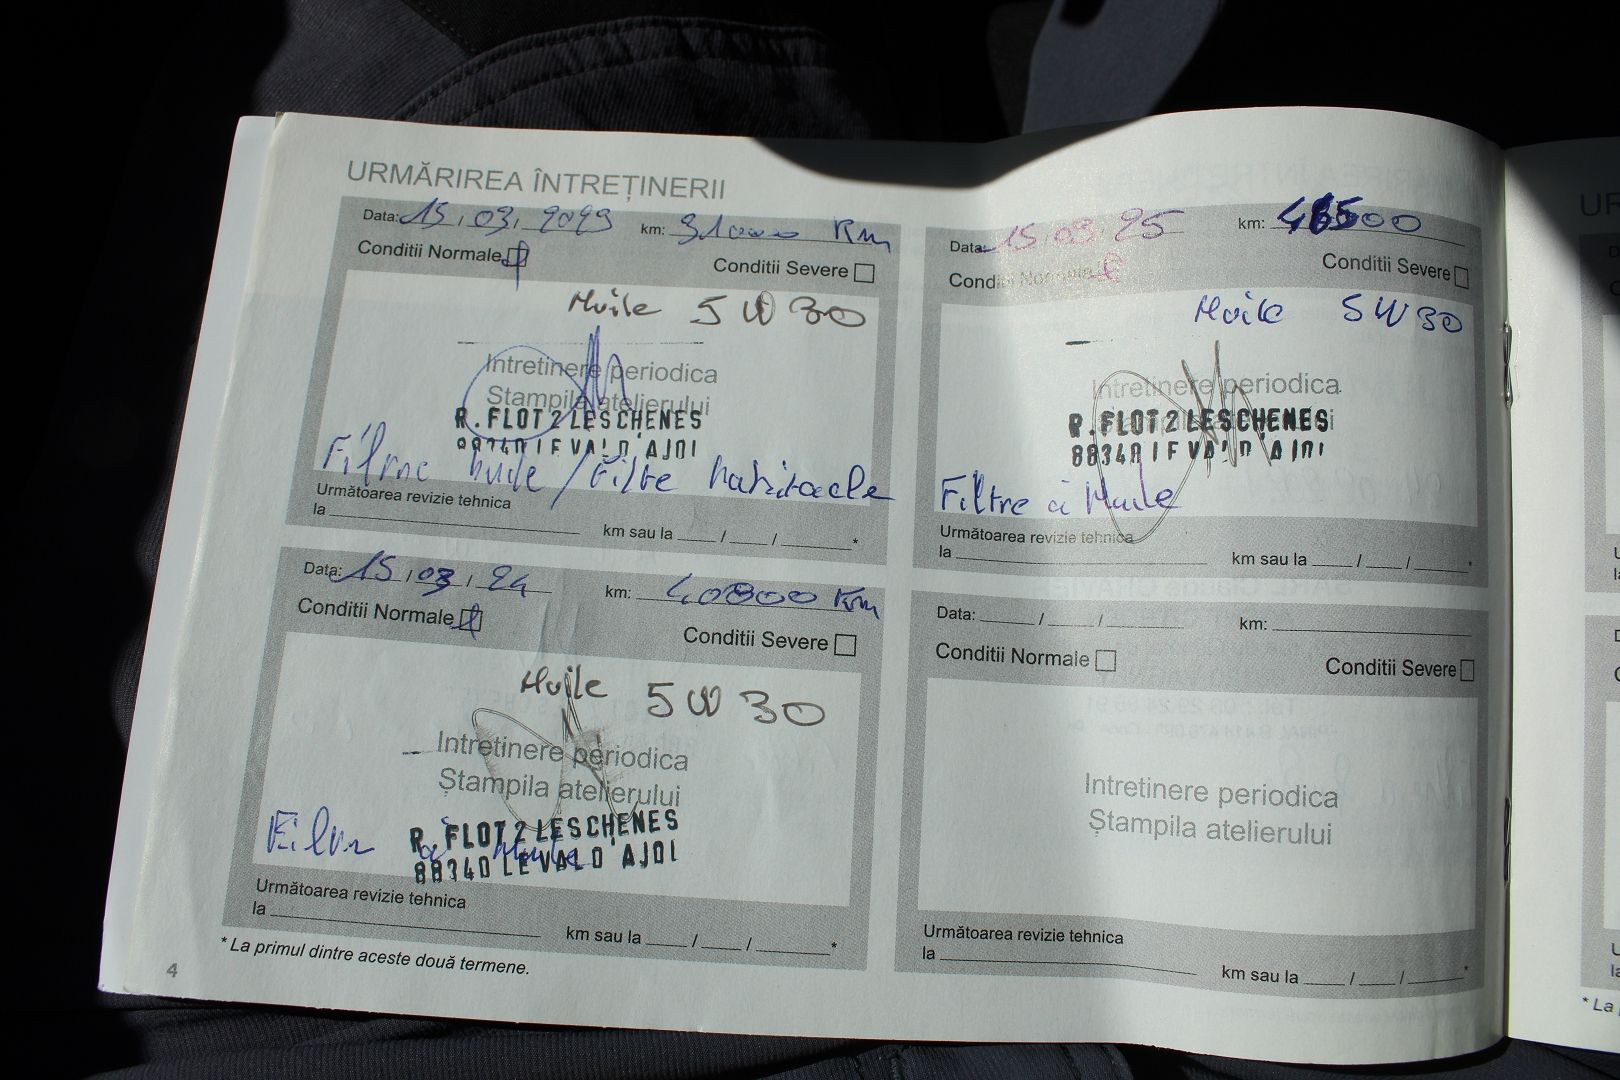 URMĂRIREA ÎNTREȚINERII
Data: 15 / 03 / 2023 km: 31000 Km
Conditii Normale Conditii Severe
Huile 5W30
Intretinere periodica
Stampila atelierului
R. FLOT 2 LES CHENES
88340 LE VAL D'AJOL
Filtre huile / Filtre habitacle
Următoarea revizie tehnica
la km sau la / / *
Data: 15 / 03 / 24 km: 40800 Km
Conditii Normale Conditii Severe
Huile 5W30
Intretinere periodica
Ștampila atelierului
R. FLOT 2 LES CHENES
88340 LE VAL D'AJOL
Filtre à Huile
Următoarea revizie tehnica
la km sau la / / *
* La primul dintre aceste două termene.
4
Data: 15 / 03 / 25 km:
Conditii Normale Conditii Severe
Huile 5W30
Intretinere periodica
R. FLOT 2 LES CHENES
88340 LE VAL D'AJOL
Filtre à Huile
Următoarea revizie tehnica
la km sau la / / *
Data: / / km:
Conditii Normale Conditii Severe
Intretinere periodica
Ștampila atelierului
Următoarea revizie tehnica
la km sau la / / *
* La